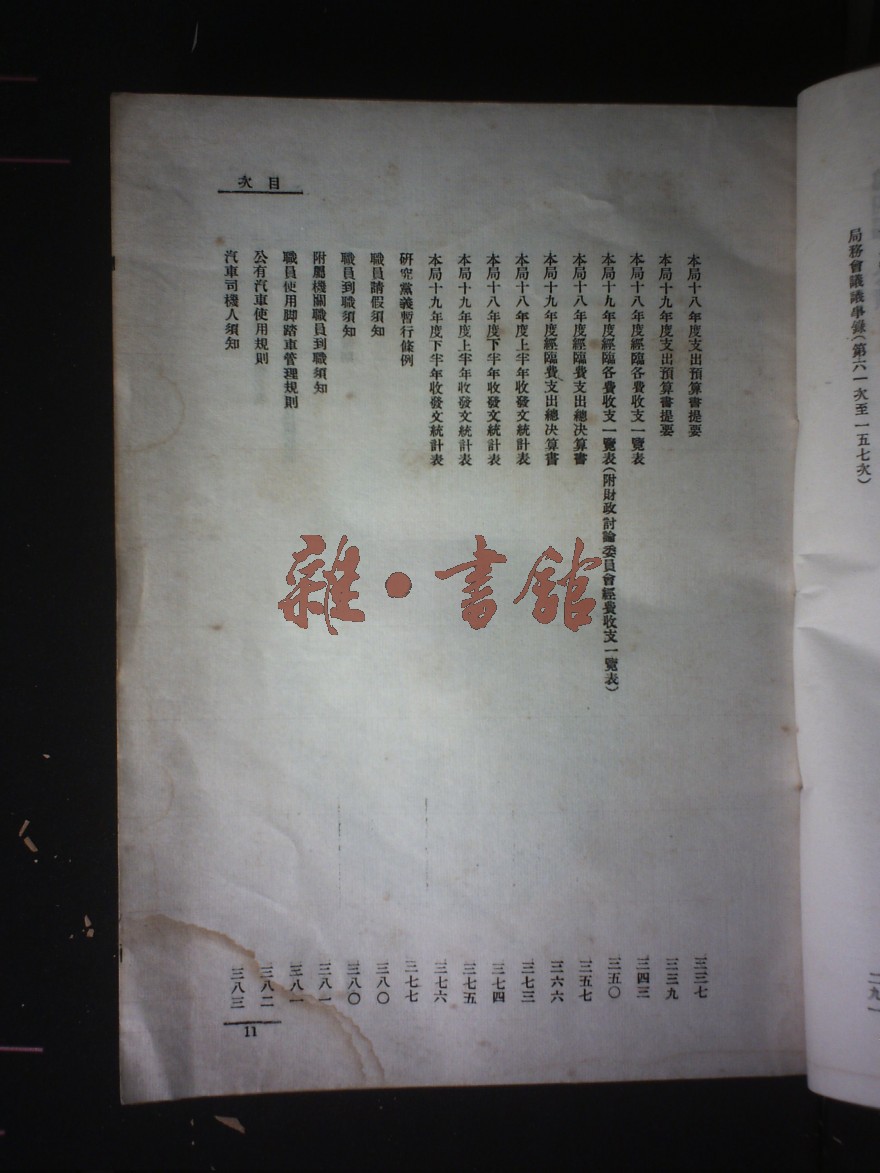 局務會議議事錄(第六一次至一五七次)
二九一
目次
本局十八年度支出預算書提要
三三七
本局十九年度支出預算書提要
三三九
本局十八年度經臨各費收支一覽表
三四三
本局十九年度經臨各費收支一覽表(附財政討論委員會經費收支一覽表)
三五〇
本局十八年度經臨費支出總决算書
三五七
本局十九年度經臨費支出總决算書
三六六
本局十八年度上半年收發文統計表
三七三
本局十八年度下半年收發文統計表
三七四
本局十九年度上半年收發文統計表
三七五
本局十九年度下半年收發文統計表
三七六
研究黨義暫行條例
三七七
職員請假須知
三八〇
職員到職須知
三八〇
附屬機關職員到職須知
三八一
職員使用脚踏車管理規則
三八一
公有汽車使用規則
三八二
汽車司機人須知
三八三
11
雜·書館